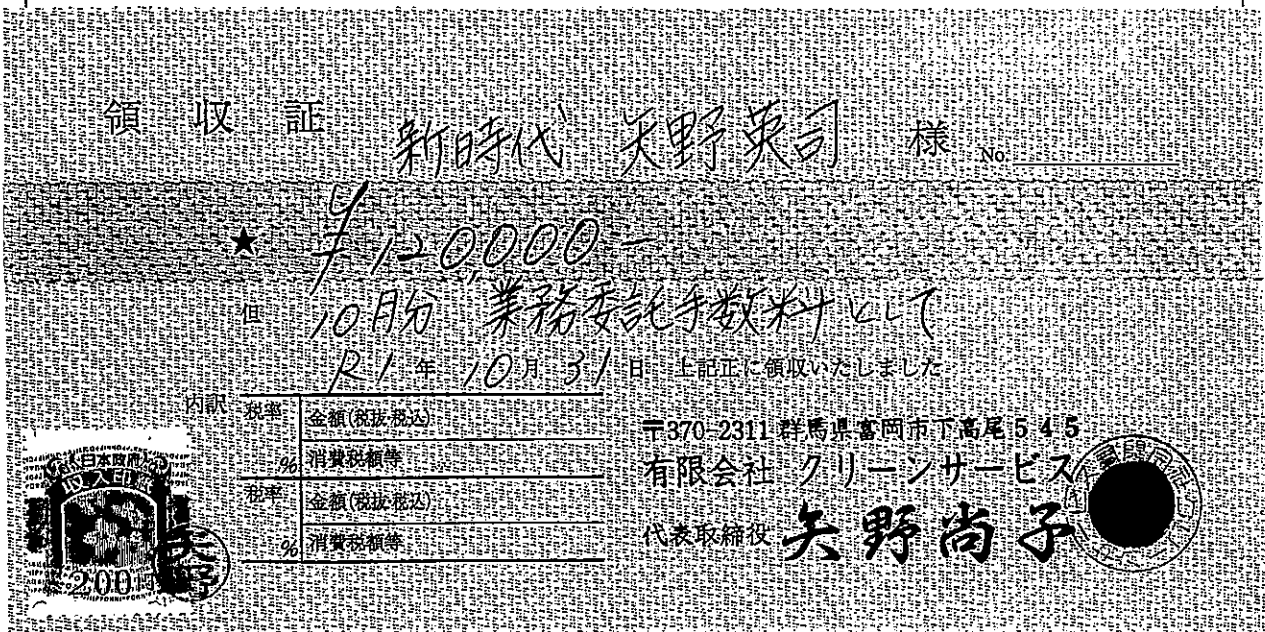 領収証
新時代 矢野英司 様 No.
★ ¥120,000-
但 10月分 業務委託手数料として
R1年10月31日 上記正に領収いたしました
内訳
税率 金額(税抜・税込)
% 消費税額等
税率 金額(税抜・税込)
% 消費税額等
〒370-2311 群馬県富岡市下高尾545
有限会社 クリーンサービス
代表取締役 矢野尚子
日本政府
収入印紙
200
矢野